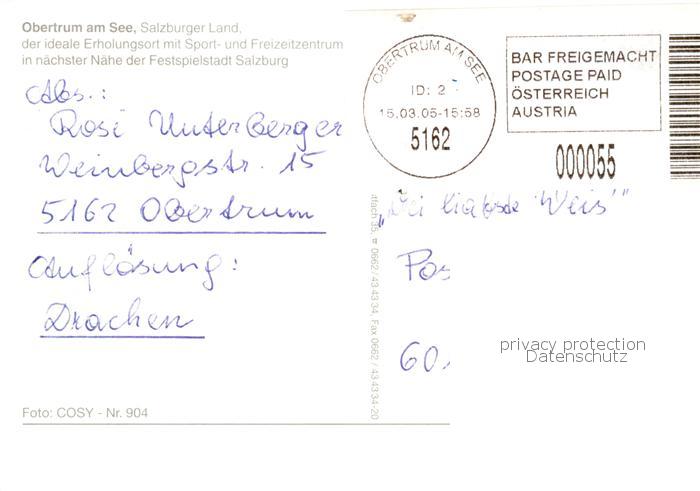 Obertrum am See, Salzburger Land,
der ideale Erholungsort mit Sport- und Freizeitzentrum
in nächster Nähe der Festspielstadt Salzburg
Abs.:
Rosi Unterberger
Weinbergstr. 15
5162 Obertrum
Auflösung:
Drachen
Foto: COSY - Nr. 904
tfach 35, ☎ 0662/43 43 34, Fax 0662 / 43 43 34-20
OBERTRUM AM SEE
ID: 2
15.03.05-15:58
5162
BAR FREIGEMACHT
POSTAGE PAID
ÖSTERREICH
AUSTRIA
000055
"Mei liabste Weis'"
Pos
60.
privacy protection
Datenschutz